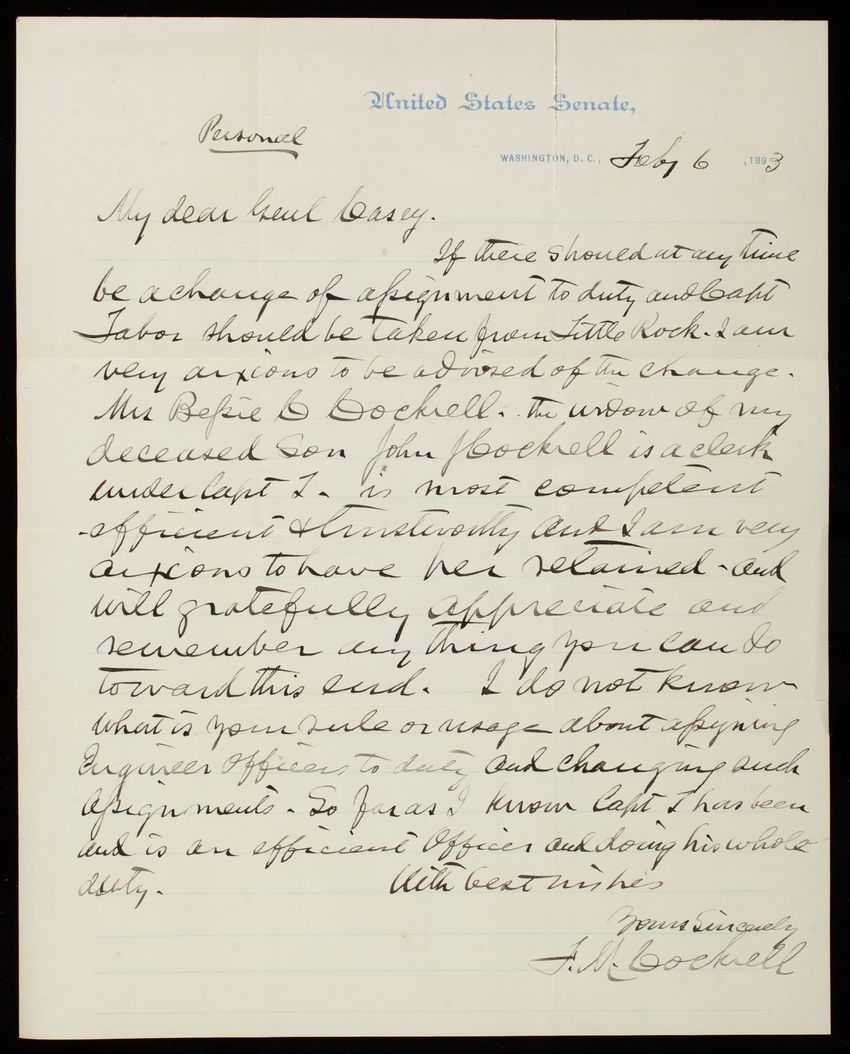 United States Senate,
Personal
WASHINGTON, D. C., Feby 6, 1893
My dear Genl Casey.
If there should at any time
be a change of assignment to duty and Capt
Tabor should be taken from Little Rock. I am
very anxious to be advised of the change.
Mrs Bessie C Cockrell. the widow of my
deceased Son John J Cockrell is a clerk
under Capt T. is most competent
-efficient & trustworthy and I am very
anxious to have her retained - and
will gratefully appreciate and
remember any thing you can do
toward this end. I do not know
what is your rule or usage about assigning
Engineer Officers to duty and changing such
assignments. So far as I know Capt T has been
and is an efficient Officer and doing his whole
duty. With best wishes
Yours Sincerely
F. M. Cockrell